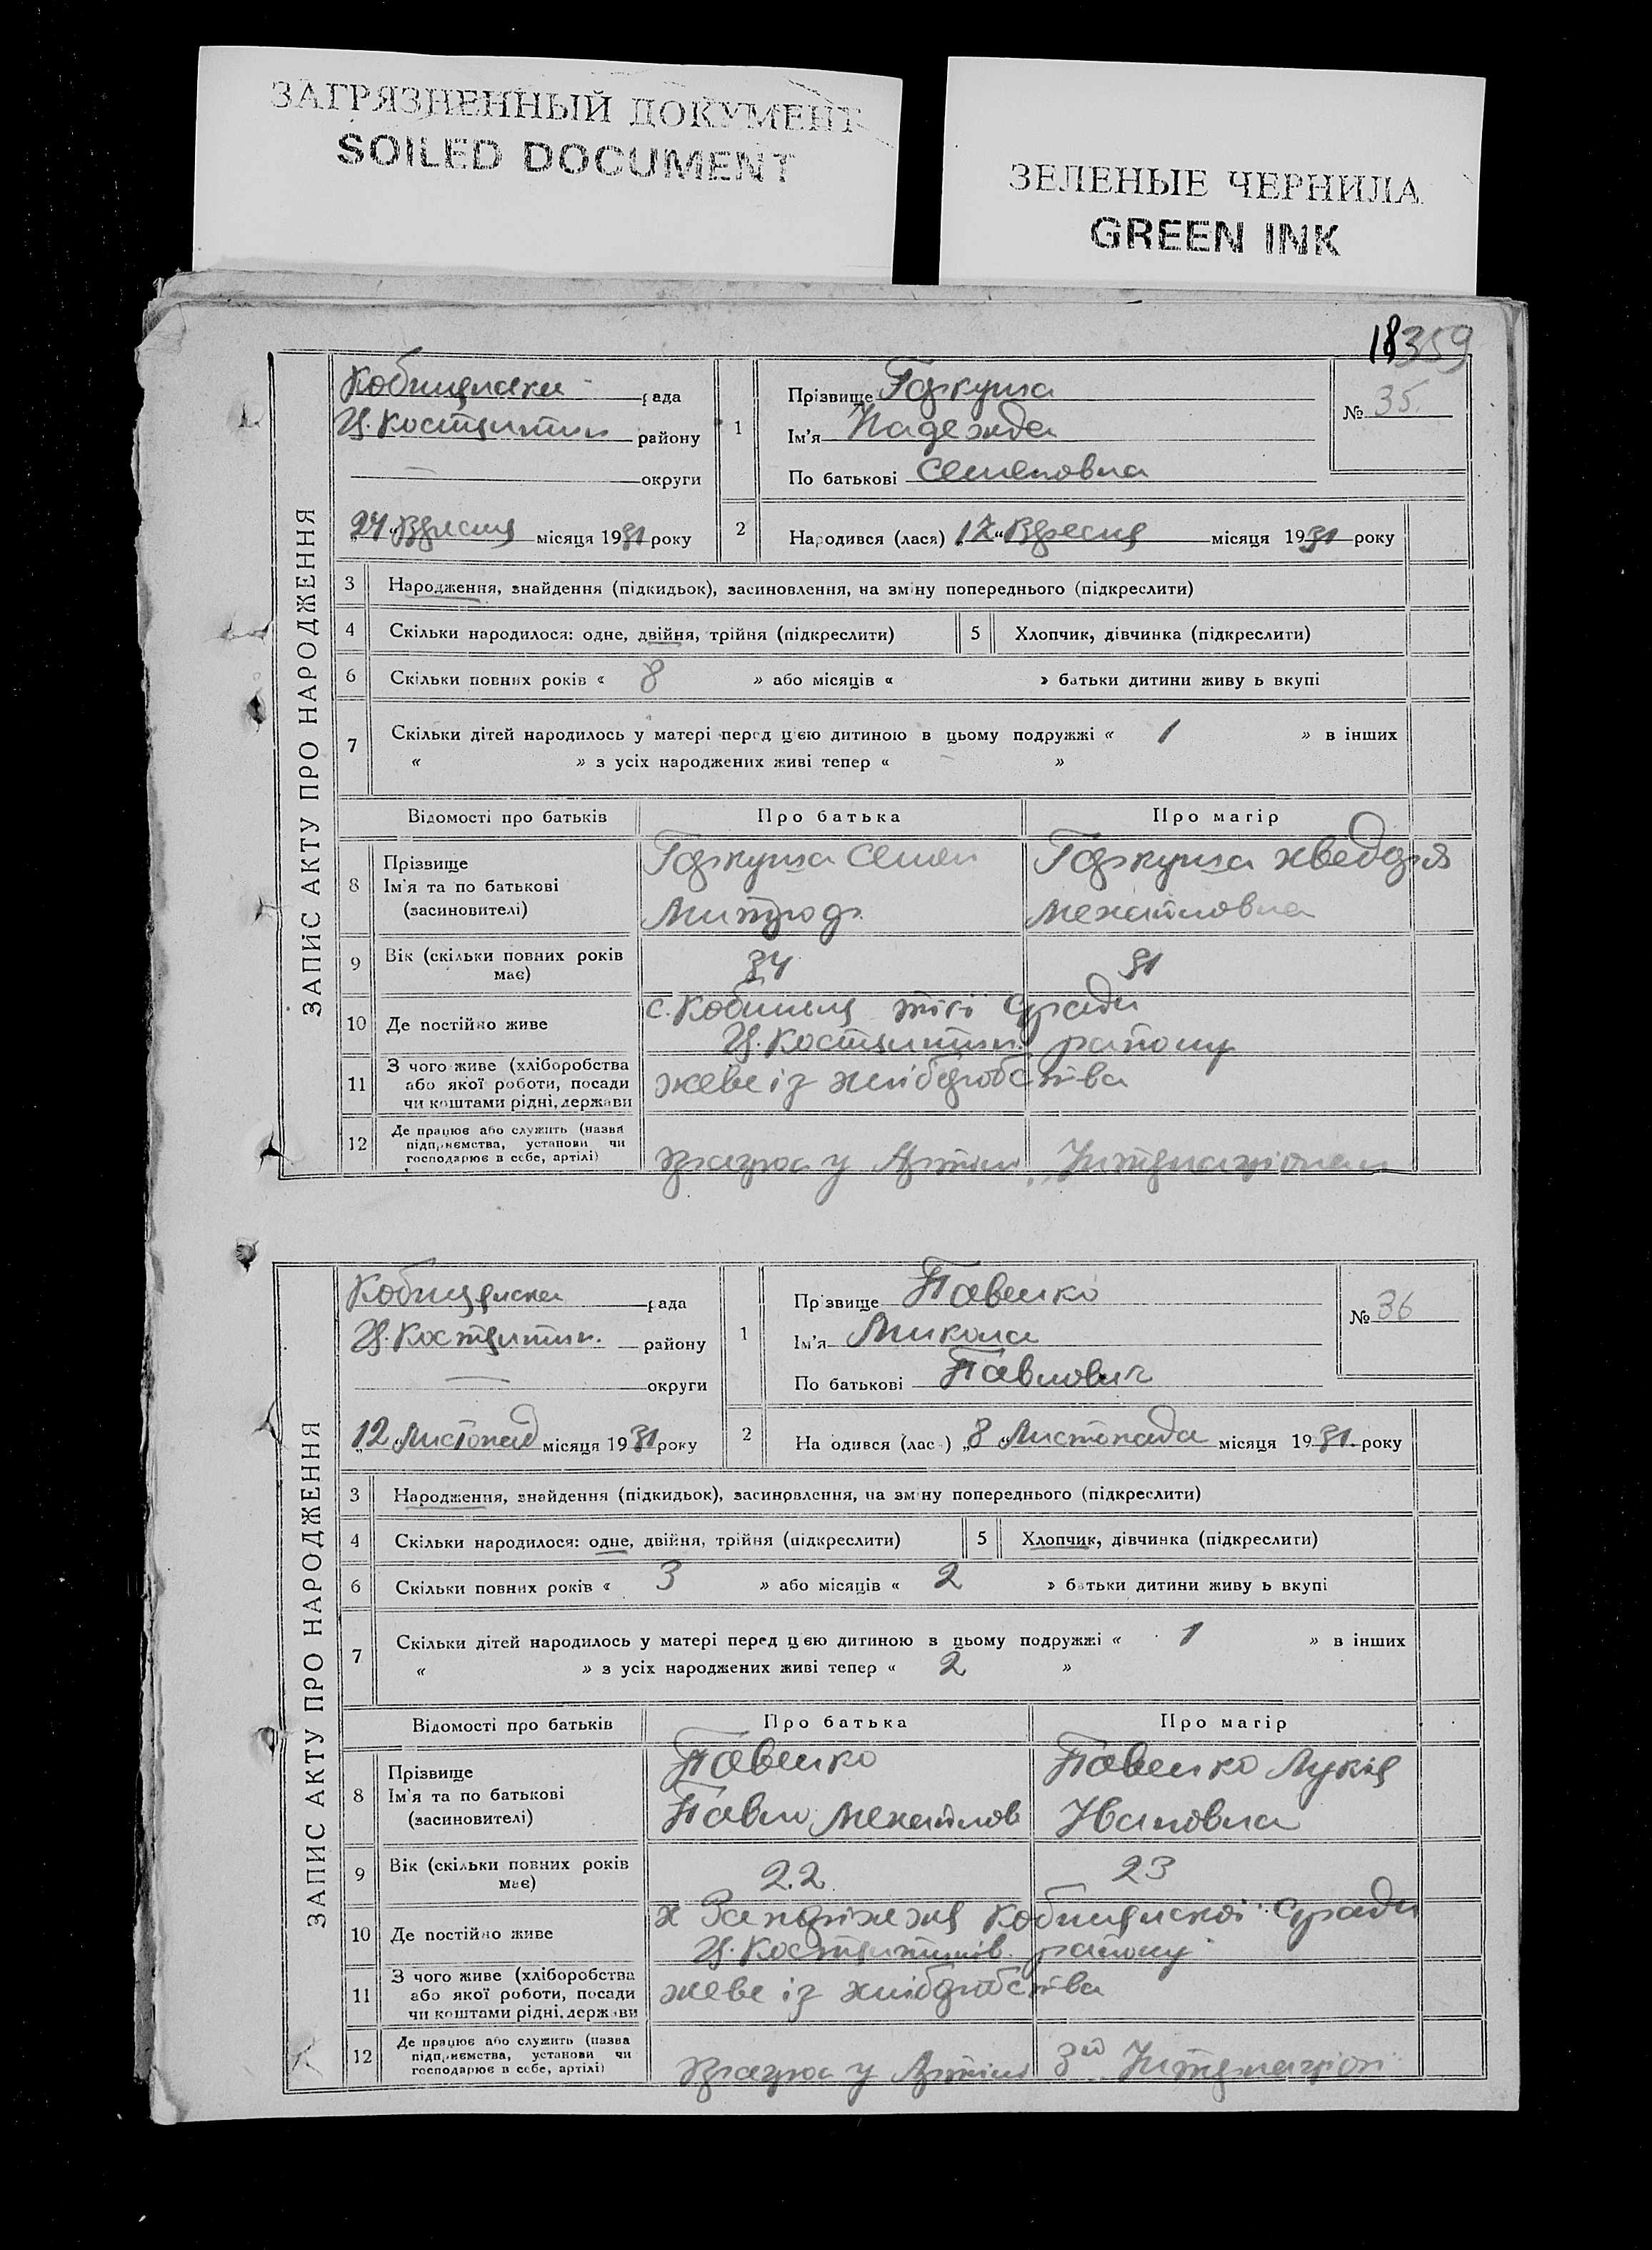 ЗАГРЯЗНЕННЫЙ ДОКУМЕНТ
SOILED DOCUMENT
ЗЕЛЕНЫЕ ЧЕРНИЛА
GREEN INK
18359
ЗАПИС АКТУ ПРО НАРОДЖЕННЯ
рада
району
округи
"24" Вересня місяця 1931 року
1
Прізвище Горкуша
Ім'я Надежда
По батькові Семеновна
№ 35.
2
Народився (лася) "17" Вересня місяця 1931 року
3 Народження, знайдення (підкидьок), засиновлення, на зміну попереднього (підкреслити)
4 Скільки народилося: одне, двійня, трійня (підкреслити) 5 Хлопчик, дівчинка (підкреслити)
6 Скільки повних років « 8 » або місяців « » батьки дитини живу ь вкупі
7 Скільки дітей народилось у матері перед цією дитиною в цьому подружжі « 1 » в інших
« » з усіх народжених живі тепер « »
Відомості про батьків Про батька Про матір
8 Прізвище Горкуша Семен Горкуша Хведоря
Ім'я та по батькові
(засиновителі) Митроф. Механовна
9 Вік (скільки повних років 34 31
має)
10 Де постійно живе с. тієї с/ради
району
11 З чого живе (хліборобства живе із хліборобства
або якої роботи, посади
чи коштами рідні, держави
12 Де працює або служить (назва
підприємства, установи чи
господарює в себе, артілі) Працює у Артілі Інтернаціонал
ЗАПИС АКТУ ПРО НАРОДЖЕННЯ
рада
району
округи
"12" Листопад місяця 1931 року
1
Пр звище Павенко
Ім'я Микола
По батькові Павлович
№ 36
2
На одився (лас ) "8" Листопада місяця 1931. року
3 Народження, знайдення (підкидьок), засиновлення, на зміну попереднього (підкреслити)
4 Скільки народилося: одне, двійня, трійня (підкреслити) 5 Хлопчик, дівчинка (підкреслити)
6 Скільки повних років « 3 » або місяців « 2 » батьки дитини живу ь вкупі
7 Скільки дітей народилось у матері перед цією дитиною в цьому подружжі « 1 » в інших
« » з усіх народжених живі тепер « 2 »
Відомості про батьків Про батька Про матір
8 Прізвище Павенко Павенко Лукія
Ім'я та по батькові
(засиновителі) Павло Механлов Ивановна
9 Вік (скільки повних років 22 23
має)
10 Де постійно живе х с/ради
району
11 З чого живе (хліборобства живе із хліборобства
або якої роботи, посади
чи коштами рідні, держави
12 Де працює або служить (назва
підприємства, установи чи
господарює в себе, артілі) Працює у Артілі 3й Інтернаціон